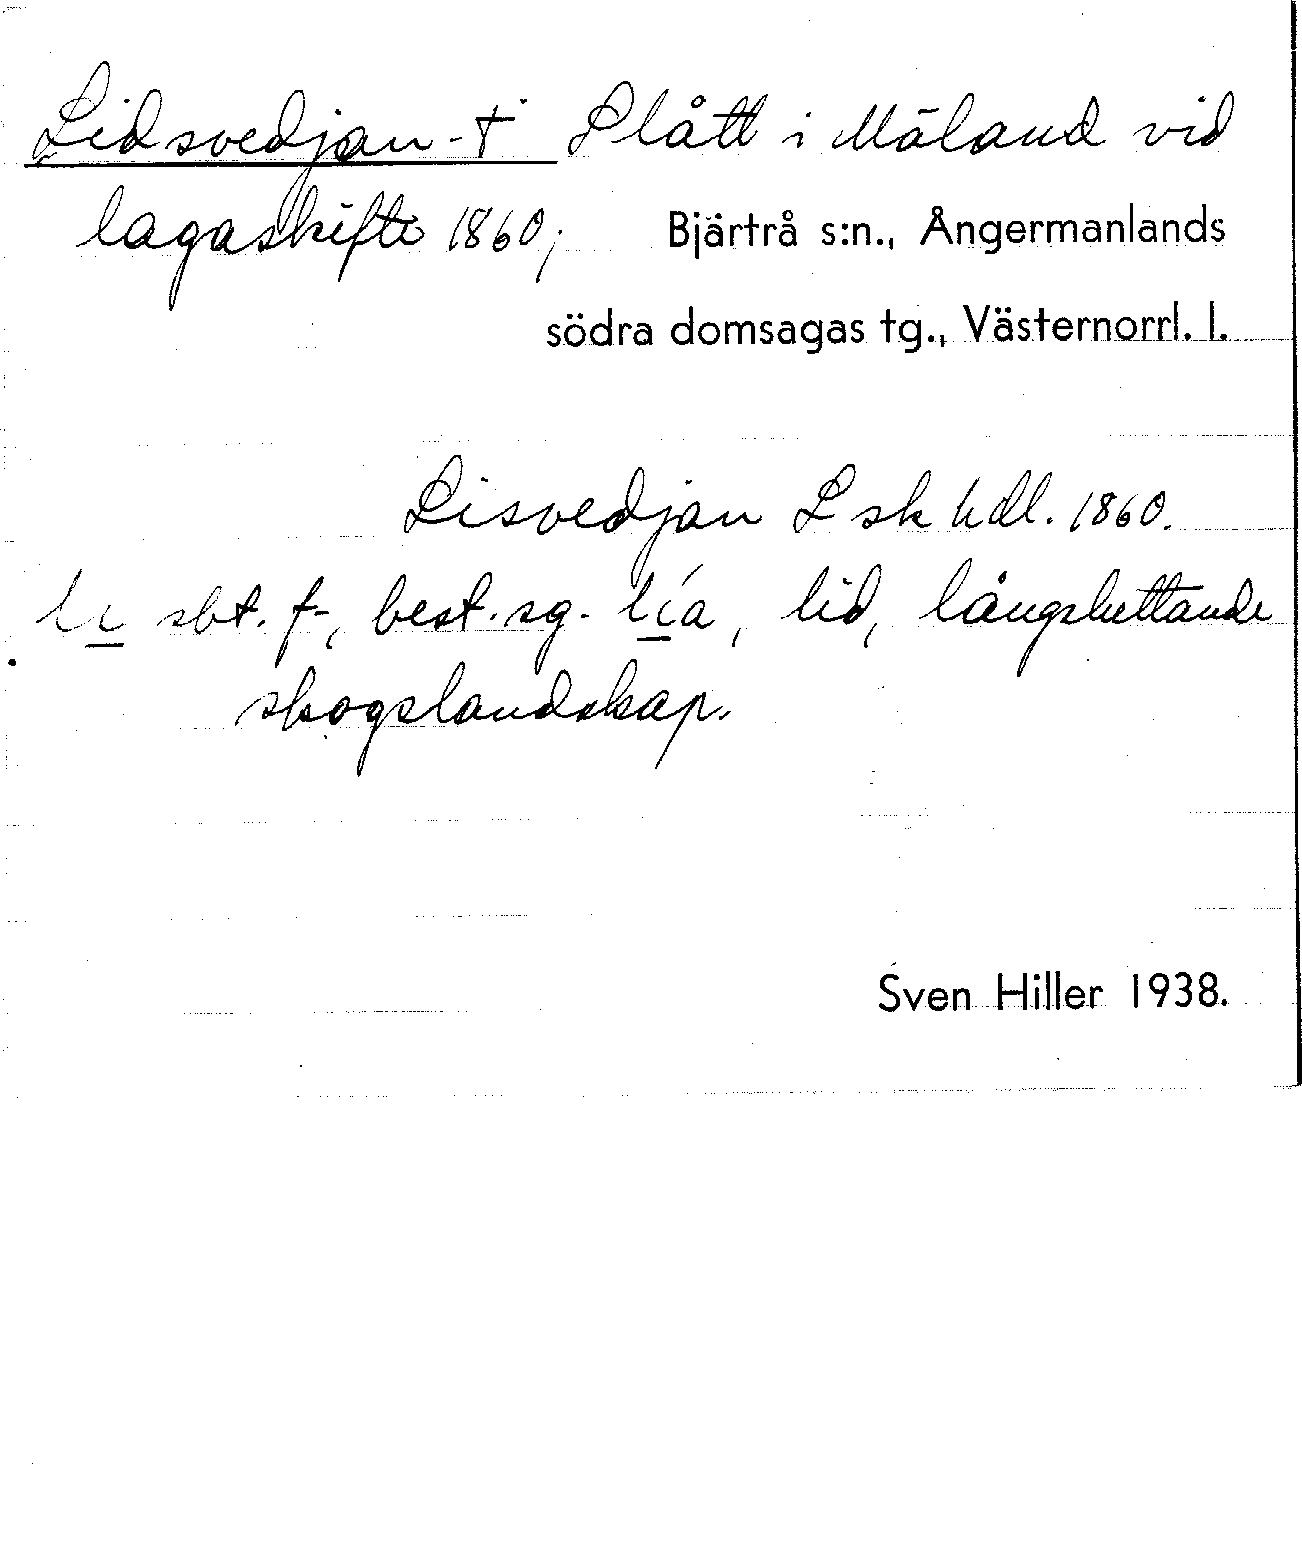 Lidsvedjan - † Slått i Mäland vid
lagaskifte 1860; Bjärtrå s:n., Ångermanlands
södra domsagas tg., Västernorrl. l.
Lisvedjan Lsk hdl. 1860.
li sbt. f., best. sg. lía, lid, långsluttande
skogslandskap.
Sven Hiller 1938.